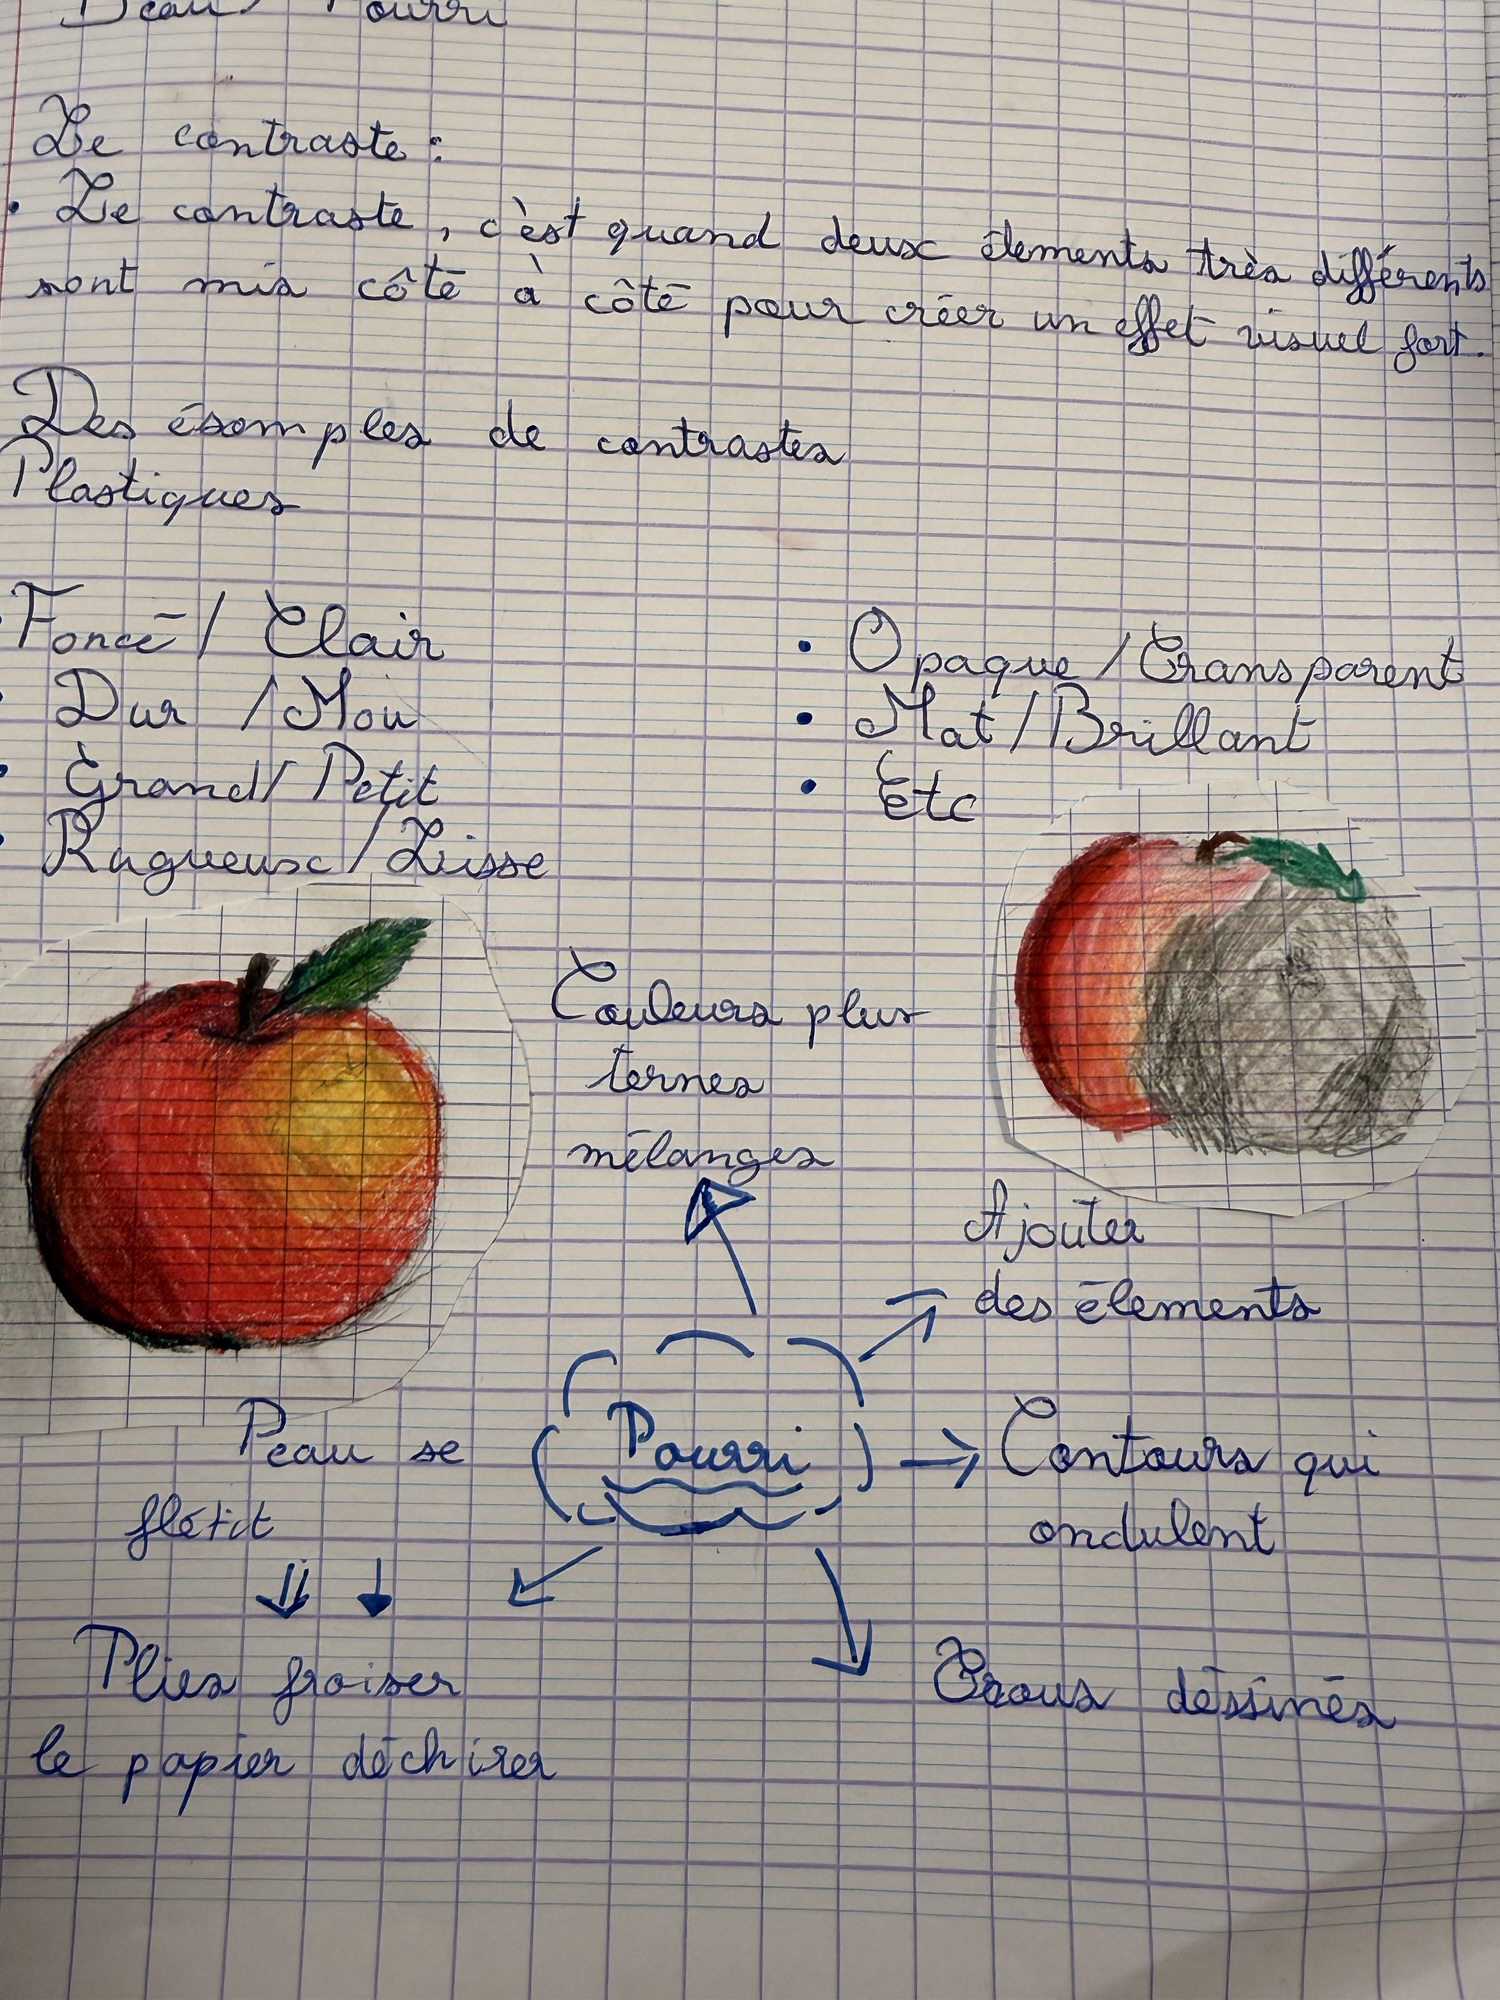 Beau / Pourri
Le contraste :
• Le contraste, c'èst quand deux élements très différents
sont mis côté à côté pour créer un effet visuel fort.
Des ésomples de contrastes
Plastiques
• Foncé / Clair
• Dur / Mou
• Grand / Petit
• Rugueux / Lisse
• Opaque / Transparent
• Mat / Brillant
• Etc
Couleurs plus
ternes
mélanges
Ajouter
des élements
Pourri
Contours qui
ondulent
Peau se
flétit
Plies froiser
le papier déchirer
Trous déssinés